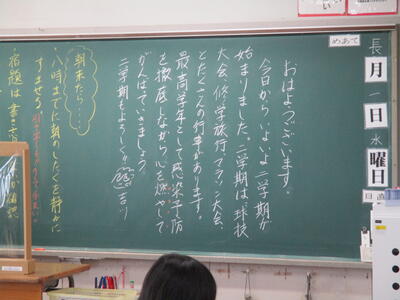 めあて
長月一日水曜日
日直
おはようございます。
今日から、いよいよ二学期が
始まりました。二学期は、球技
大会、修学旅行、マラソン大会、
とたくさんの行事があります。
最高学年として感染予防
を徹底しながら心を燃やして
がんばっていきましょう。
二学期もよろしく!!
朝来たら・・・
・八時までに朝のしたくを静かに
すませる。
・宿題は